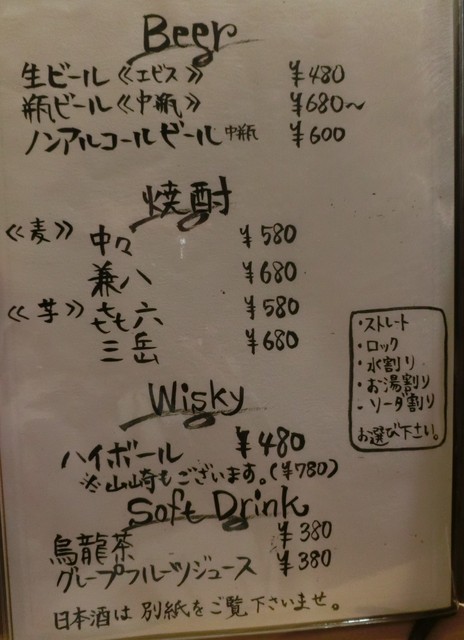 Beer
生ビール《エビス》 ¥480
瓶ビール《中瓶》 ¥680〜
ノンアルコールビール 中瓶 ¥600
焼酎
《麦》 中々 ¥580
兼八 ¥680
《芋》 㐂六 ¥580
三岳 ¥680
・ストレート
・ロック
・水割り
・お湯割り
・ソーダ割り
お選び下さい。
Wisky
ハイボール ¥480
※山崎もございます。(¥780)
Soft Drink
烏龍茶 ¥380
グレープフルーツジュース ¥380
日本酒は別紙をご覧下さいませ。